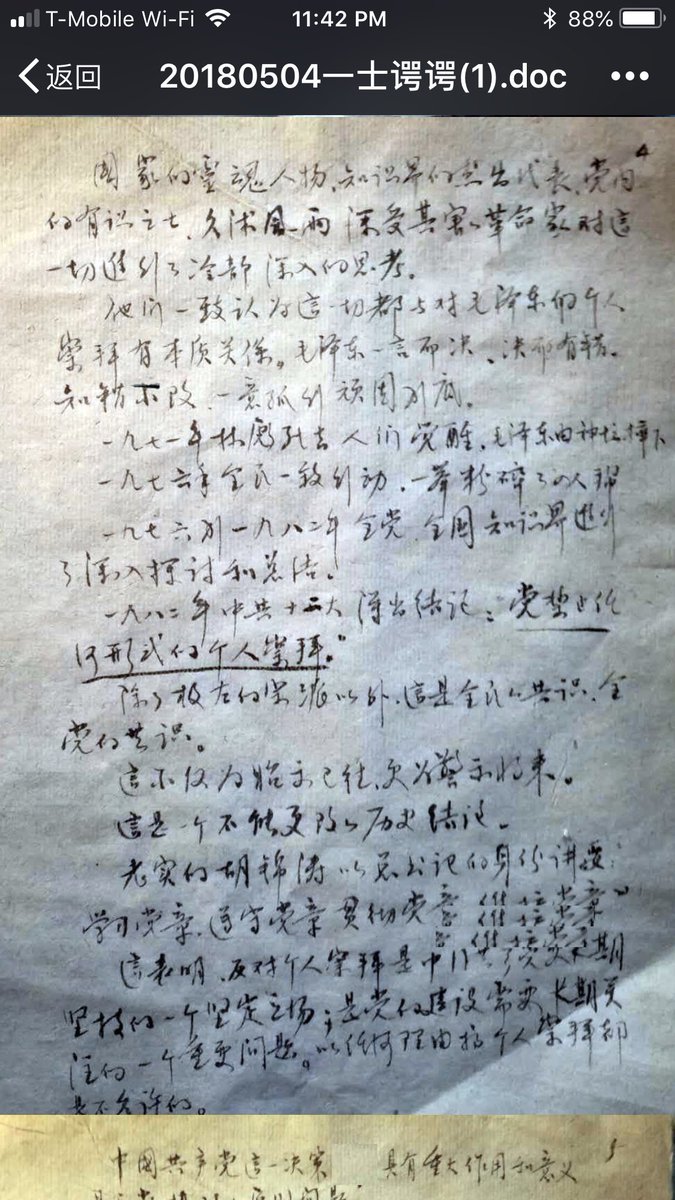 T-Mobile Wi-Fi 11:42 PM 88%
返回 20180504一士谔谔(1).doc
4
国家的靈魂人物、知识界的杰出代表、党内
的有识之士、久沐風雨 深受其害的革命家对這
一切進行了冷静 深入的思考。
他们一致认为這一切都与对毛泽东的个人
崇拜有本质关係。毛泽东一言而决、决而有错、
知错不改、一意孤行 顽固到底。
一九七一年林彪死去 人们觉醒，毛泽东由神坛摔下
一九七六年全民一致行动，一举粉碎了四人帮
一九七六到一九八二年 全党、全国知识界進行
了深入探讨和总结。
一九八二年中共十二大 得出结论："党禁止任
何形式的个人崇拜。"
除了极左的宗派以外，這是全民的共识、全
党的共识。
這不仅为昭示已往，更为警示将来！
這是一个不能更改的历史结论。
老实的胡锦涛以总书记的身份讲要：
学习党章，遵守党章 贯彻党章 维护党章"
這表明，反对个人崇拜是中国共产党长期
坚持的一个坚定立场；是党的建设需要长期关
注的一个重要问题。以任何理由搞个人崇拜都
是不允许的。
5
中国共产党這一决策 具有重大作用和意义